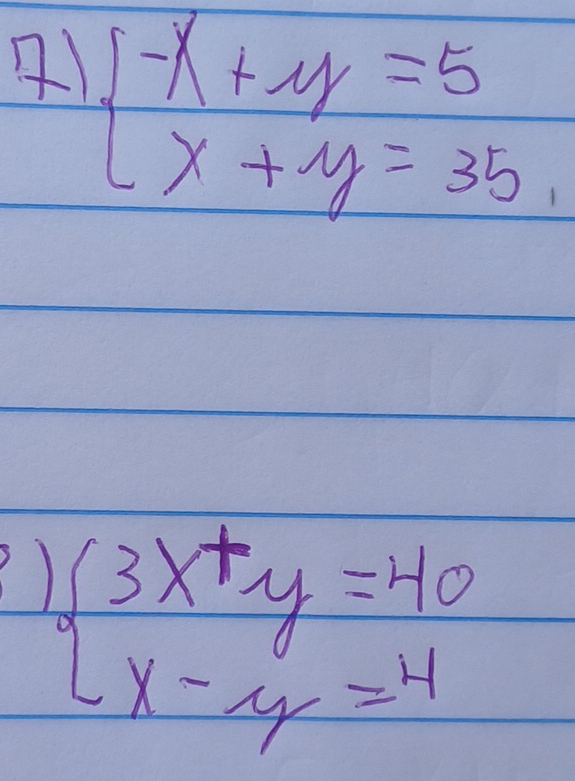 7) { -x + y = 5
x + y = 35
) { 3x + y = 40
x - y = 4